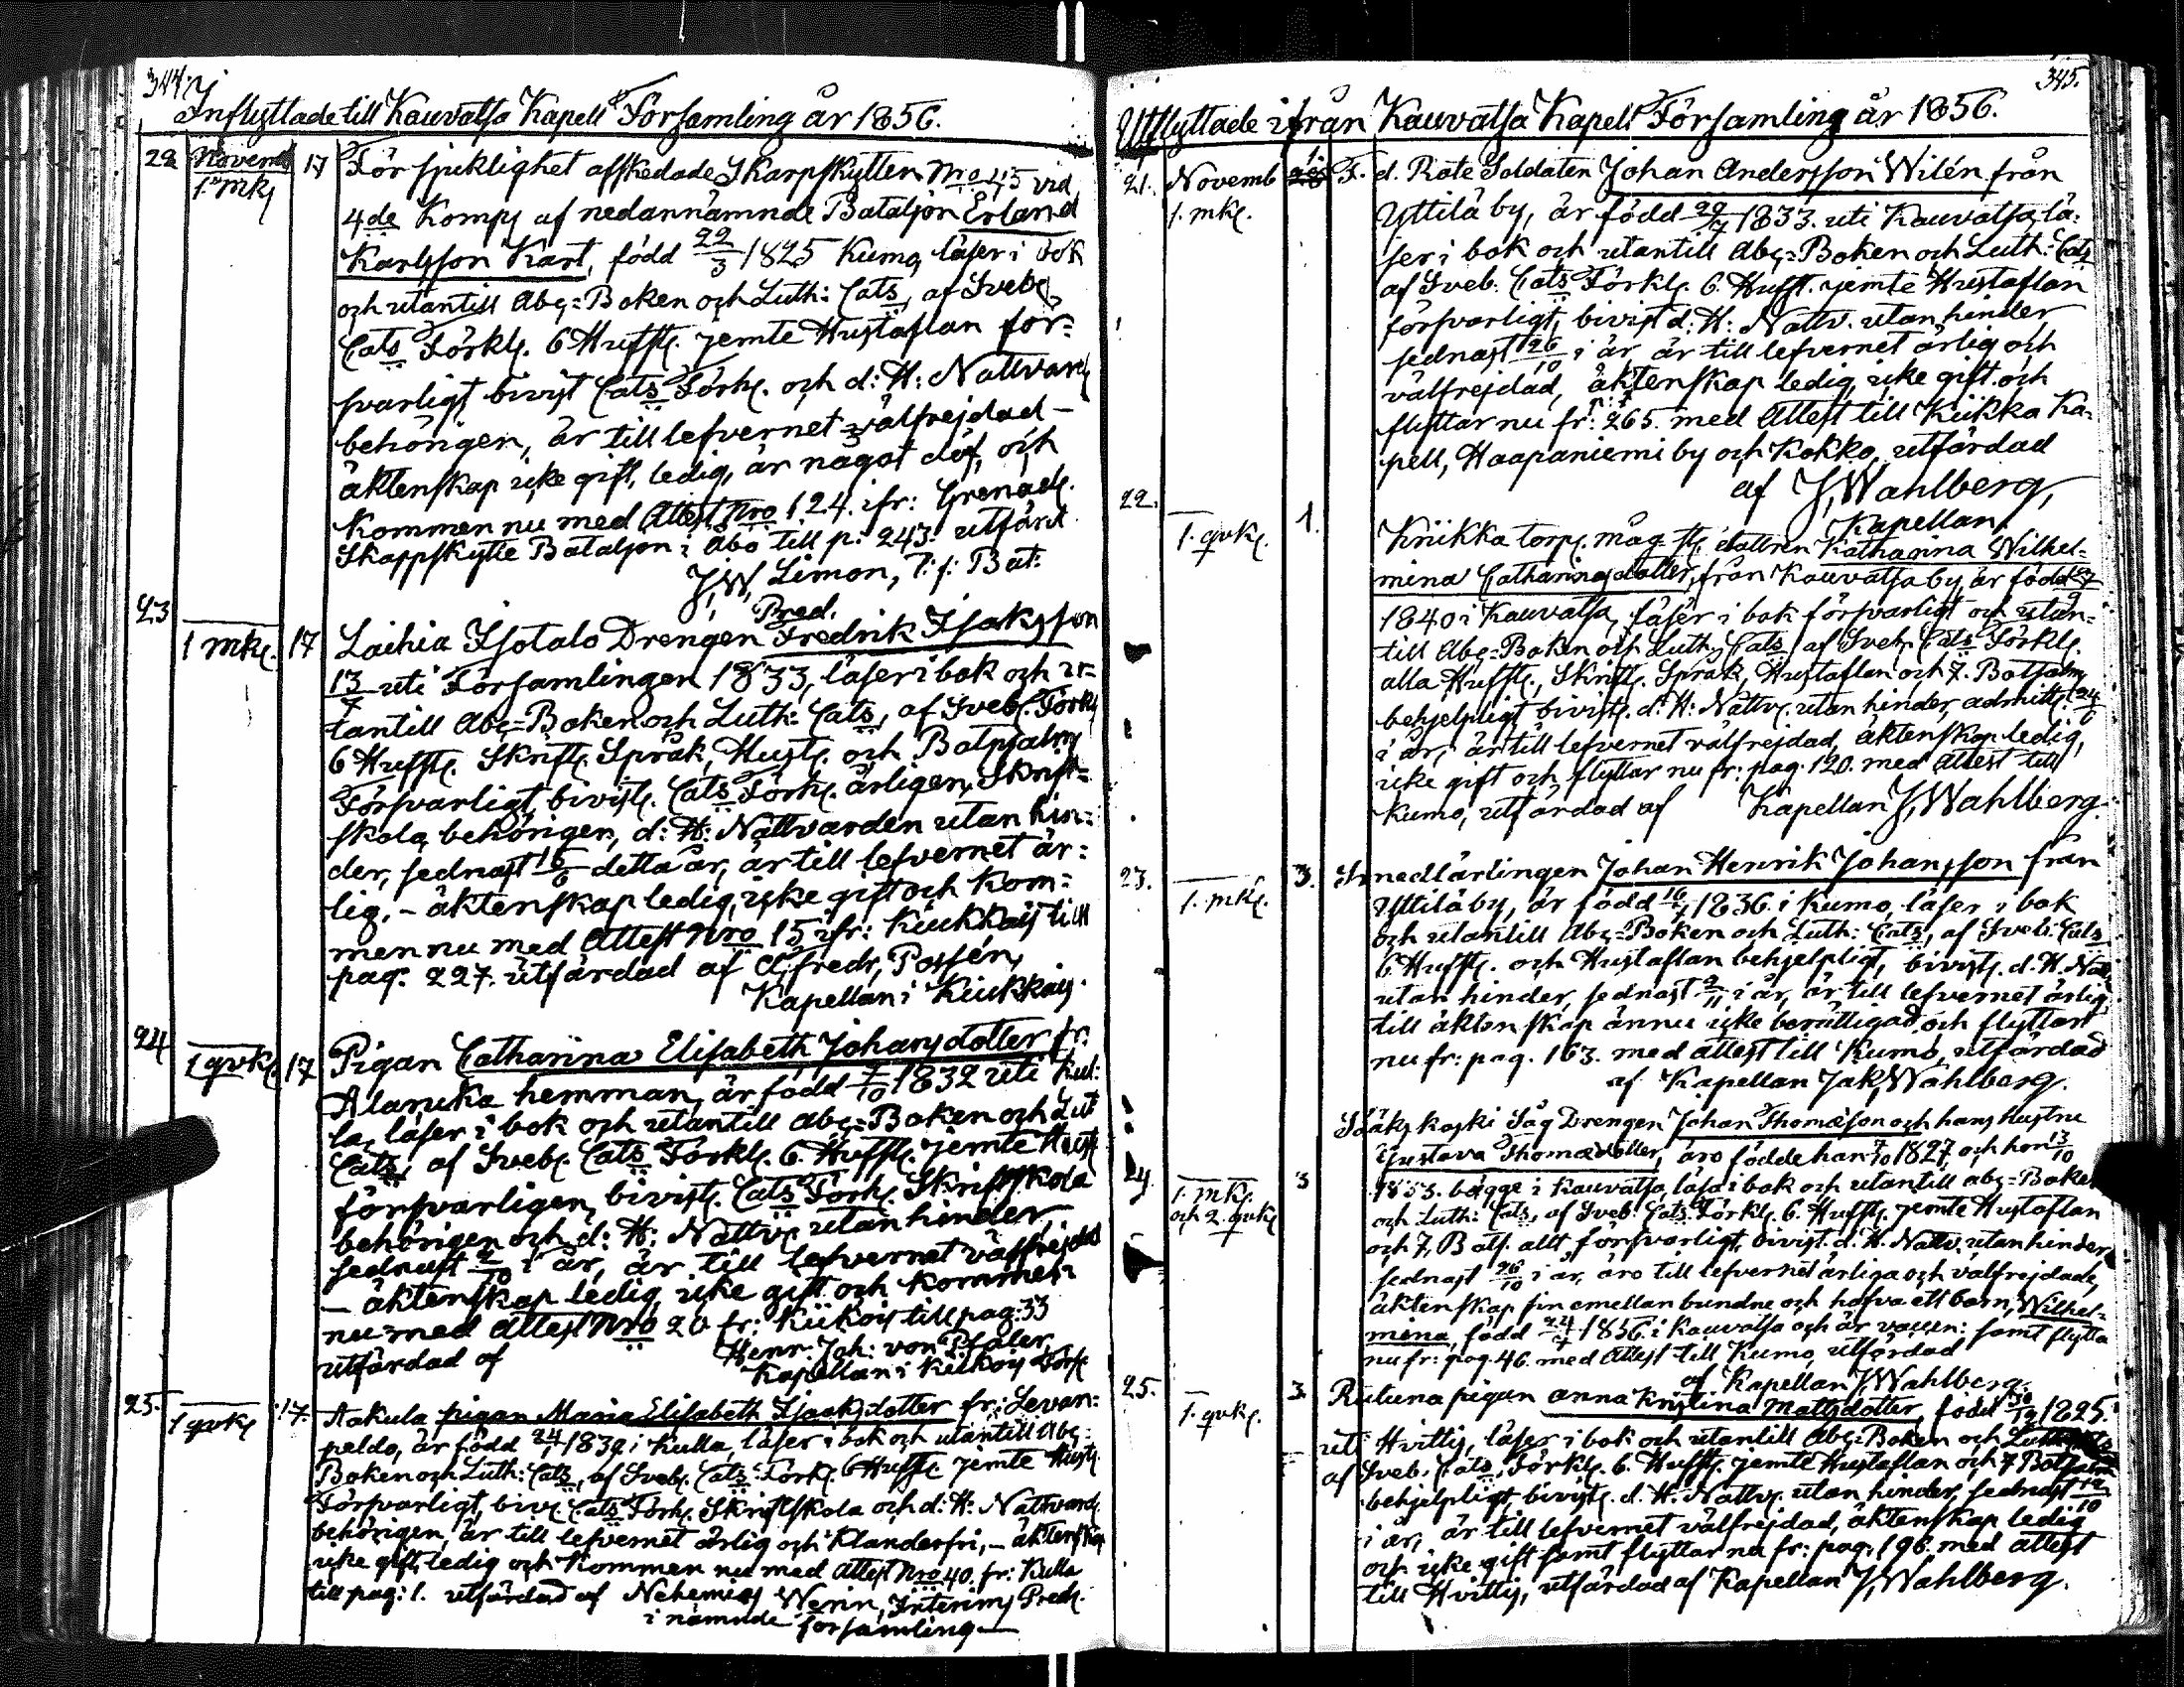 344.
Inflyttade till Kauvatsa Kapell Församling år 1856.
22 Novemb 17 För sjuklighet afskedade Skarpskytten Nro 45 vid
1. mk. 4de Komp. af nedannämnde Bataljon Erland
Karlsson Kart, född 22/3 1825 Kumo, läser i bok
och utantill Abc=Boken och Luth: Cats, af Sveb.
Cats Förkl. 6 Hufst. jemte Hustaflan för=
svarligt, bivist Cats Förh. och d: H: Nattvard
behörigen, är till lefvernet välfrejdad –
äktenskap icke gift, ledig, är något döf, och
kommen nu med Attest Nro 124. ifr: Grenad.
Skarpskytte Bataljon i Åbo till p: 243. utfärd.
J. W. Limon, T: f: Bat:
Pred.
23 1 mk. 17 Laihia Isotalo Drengen Fredrik Isaksson
13/7 uti Församlingen 1833, läser i bok och u=
tantill Abc=Boken och Luth: Cats, af Sveb. Förkl.
6 Hufst. Skrift. Språk, Hust. och Botpsalm
Försvarligt, bivist. Cats Förh. årligen, Skrift=
skola behörigen, d: H: Nattvarden utan hin=
der, sednast 16/6 detta år, är till lefvernet är=
lig. – äktenskap ledig, icke gift och kom=
men nu med Attest Nro 15 ifr: Kiukkais till
pag: 227. utfärdad af A, fredr, Possén,
Kapellan i Kiukkais.
24 1 qvk. 17 Pigan Catharina Elisabeth Johansdotter fr:
Alanuka hemman, är född 7/10 1832 uti Kul=
la, läser i bok och utantill Abc=Boken och Lut
Cats, af Sveb. Cats Förkl. 6. Hufst. jemte Hust.
försvarligen, bivist. Cats Förh. Skriftskola
behörigen och d: H: Nattv. utan hinder
sednast 2/10 i år, är till lefvernet välfrejdad
– äktenskap ledig, icke gift och kommen
nu med Attest Nro 20 fr: Kiikois till pag: 33
utfärdad af Henr. Joh: von Pfaler,
Kapellan i Kiikois Förs.
25. 1 qvk. 17. Aakula pigan Maria Elisabeth Isaksdotter fr: Levan=
peldo, är född 24/1 1839 i Kulla, läser i bok och utantill Abc=
Boken och Luth: Cats, af Sveb. Cats Förkl. 6 Hufst. jemte Hust.
Försvarligt, biv. Cats Förh. Skriftskola och d: H: Nattvard.
behörigen, är till lefvernet ärlig och Klanderfri, – äktenskap
icke gift, ledig och Kommen nu med Attest Nro 40. fr: Kulla
till pag: 1. utfärdad af Nehemias Werin, Interims Pred.
i nämnde församling.—
345.
Utflyttade ifrån Kauvatsa Kapell Församling år 1856.
21. Novemb 1. F. d. Rote Soldaten Johan Andersson Wilén från
1. mk. Yttilä by, är född 29/7 1833. uti Kauvatsa, lä=
ser i bok och utantill Abc=Boken och Luth: Cats
af Sveb. Cats Förkl. 6. Hufst. jemte Hustaflan
försvarligt, bivist d: H: Nattv. utan hinder
sednast 26/10 i år, är till lefvernet ärlig och
välfrejdad, äktenskap ledig, icke gift och
flyttar nu fr: p: 265. med Attest till Kiikka Ka=
pell, Haapaniemi by och Kokko, utfärdad
af J, Wahlberg,
Kapellan.
22. 1. qvk. 1. Kniikka torp. måg. fl. dottren Katharina Wilhel=
mina Catharinasdotter, från Kauvatsa by, är född 27/9
1840 i Kauvatsa, läser i bok försvarligt och utan=
till Abc=Boken och Luth. Cats af Sveb. Cats Förkl.
alla Hufst., Skrift. Språk, Hustaflan och 7. Botpsalm
behjelpligt, bivist. d: H: Nattv. utan hinder, admitt. 24/6
i år, är till lefvernet välfrejdad, äktenskap ledig,
icke gift och flyttar nu fr: pag. 120. med Attest till
Kumo, utfärdad af Kapellan J, Wahlberg.
23. 1. mk. 3. Smedlärlingen Johan Henrik Johansson från
Yttilä by, är född 16/4 1836. i Kumo, läser i bok
och utantill Abc=Boken och Luth: Cats, af Sveb: Cats
6. Hufst. och Hustaflan behjelpligt, bivist. d. H. Natt.
utan hinder, sednast 2/11 i år, är till lefvernet ärlig,
till äktenskap ännu icke berättigad och flyttar
nu fr: pag. 163. med Attest till Kumo, utfärdad
af Kapellan Jak, Wahlberg.
24 1. mk. och 2. qvk. 3 Sääkskoski Såg Drengen Johan Thomasson och hans Hustru
Gustava Thomædotter, äro födde han 7/10 1827, och hon 13/10
1833. bägge i Kauvatsa, läsa i bok och utantill abc=Boken
och Luth: Cats, af Sveb. Cats Förkl. 6. Hufst. jemte Hustaflan
och 7. Bots. allt försvarligt, bivist. d. H. Nattv. utan hinder,
sednast 26/10 i år, äro till lefvernet ärliga och välfrejdade,
äktenskap sin emellan bundne och hafva ett barn, Wilhel=
mina, född 24/7 1856. i Kauvatsa och är vaccin: samt flytta
nu fr: pag. 46. med Attest till Kumo, utfärdad
af Kapellan J, Wahlberg.
25. 1. qvk. 3. Riutuna pigan Anna Kristina Mattsdotter, född 30/12 1825.
uti Hvittis, läser i bok och utantill Abc=Boken och Luth
af Sveb. Cats, Förkl. 6. Hufst. jemte Hustaflan och 7 Botpsalm
behjelpligt, bivist. d. H. Nattv. utan hinder, sednast 12/10
i år, är till lefvernet välfrejdad, äktenskap ledig
och icke gift samt flyttar nu fr: pag. 196. med attest
till Hvittis, utfärdad af Kapellan J, Wahlberg.